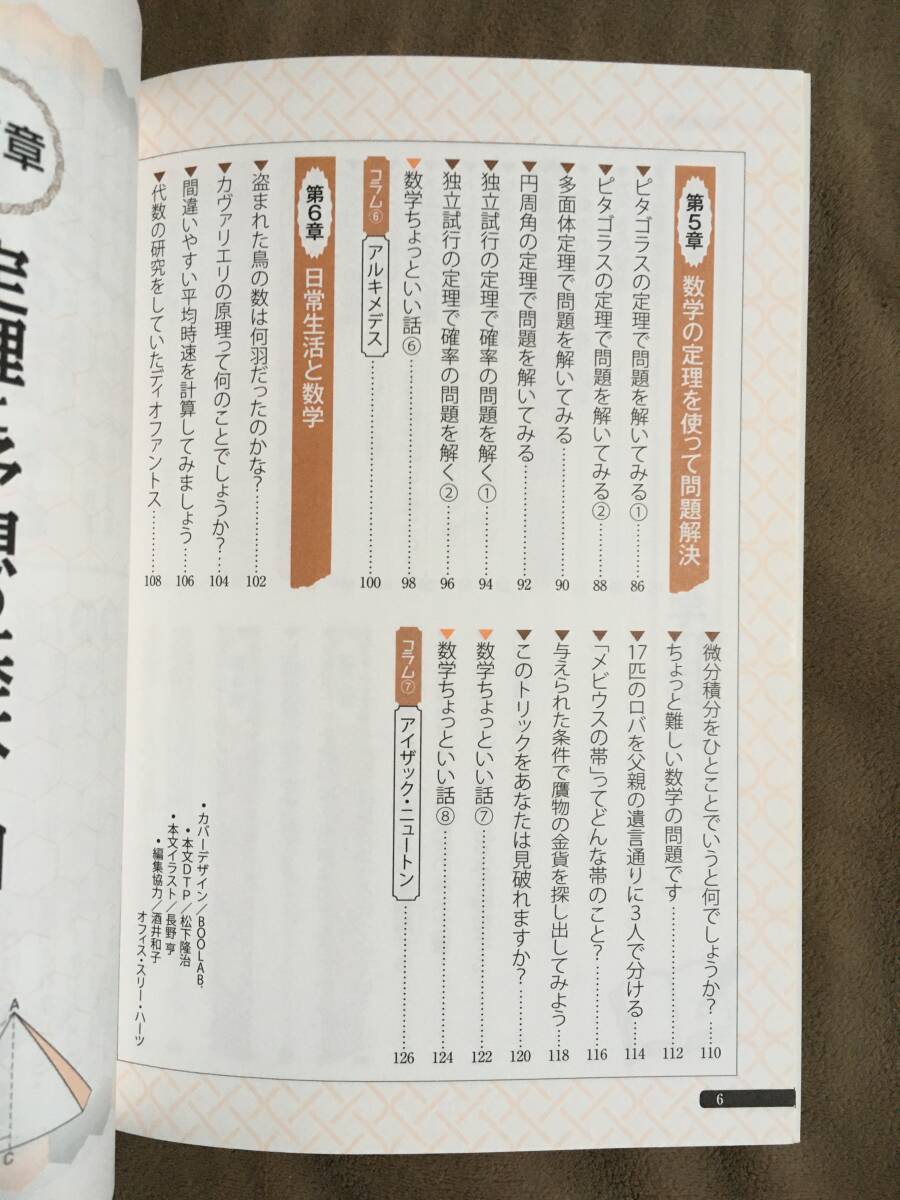 第5章 数学の定理を使って問題解決
▼ピタゴラスの定理で問題を解いてみる①……86
▼ピタゴラスの定理で問題を解いてみる②……88
▼多面体定理で問題を解いてみる……90
▼円周角の定理で問題を解いてみる……92
▼独立試行の定理で確率の問題を解く①……94
▼独立試行の定理で確率の問題を解く②……96
▼数学ちょっといい話⑥……98
コラム⑥ アルキメデス……100
第6章 日常生活と数学
▼盗まれた鳥の数は何羽だったのかな?……102
▼カヴァリエリの原理って何のことでしょうか?……104
▼間違いやすい平均時速を計算してみましょう……106
▼代数の研究をしていたディオファントス……108
▼微分積分をひとことでいうと何でしょうか?……110
▼ちょっと難しい数学の問題です……112
▼17匹のロバを父親の遺言通りに3人で分ける……114
▼「メビウスの帯」ってどんな帯のこと?……116
▼与えられた条件で贋物の金貨を探し出してみよう……118
▼このトリックをあなたは見破れますか?……120
▼数学ちょっといい話⑦……122
▼数学ちょっといい話⑧……124
コラム⑦ アイザック・ニュートン……126
・カバーデザイン/BOOLAB.
・本文DTP/松下隆治
・本文イラスト/長野 亨
・編集協力/酒井和子
オフィス・スリー・ハーツ
6
章
A
C